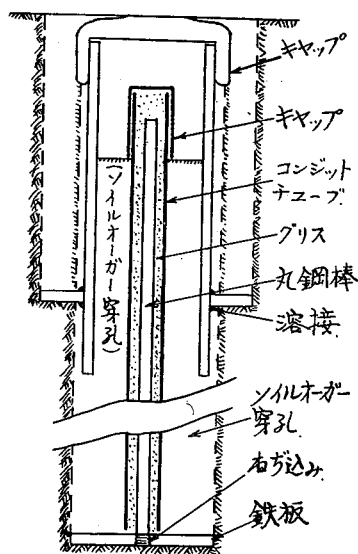 キャップ
キャップ
コンジット
チューブ
グリス
丸鋼棒
溶接
(ソイルオーガー穿孔)
ソイルオーガー
穿孔
ねぢ込み
鉄板